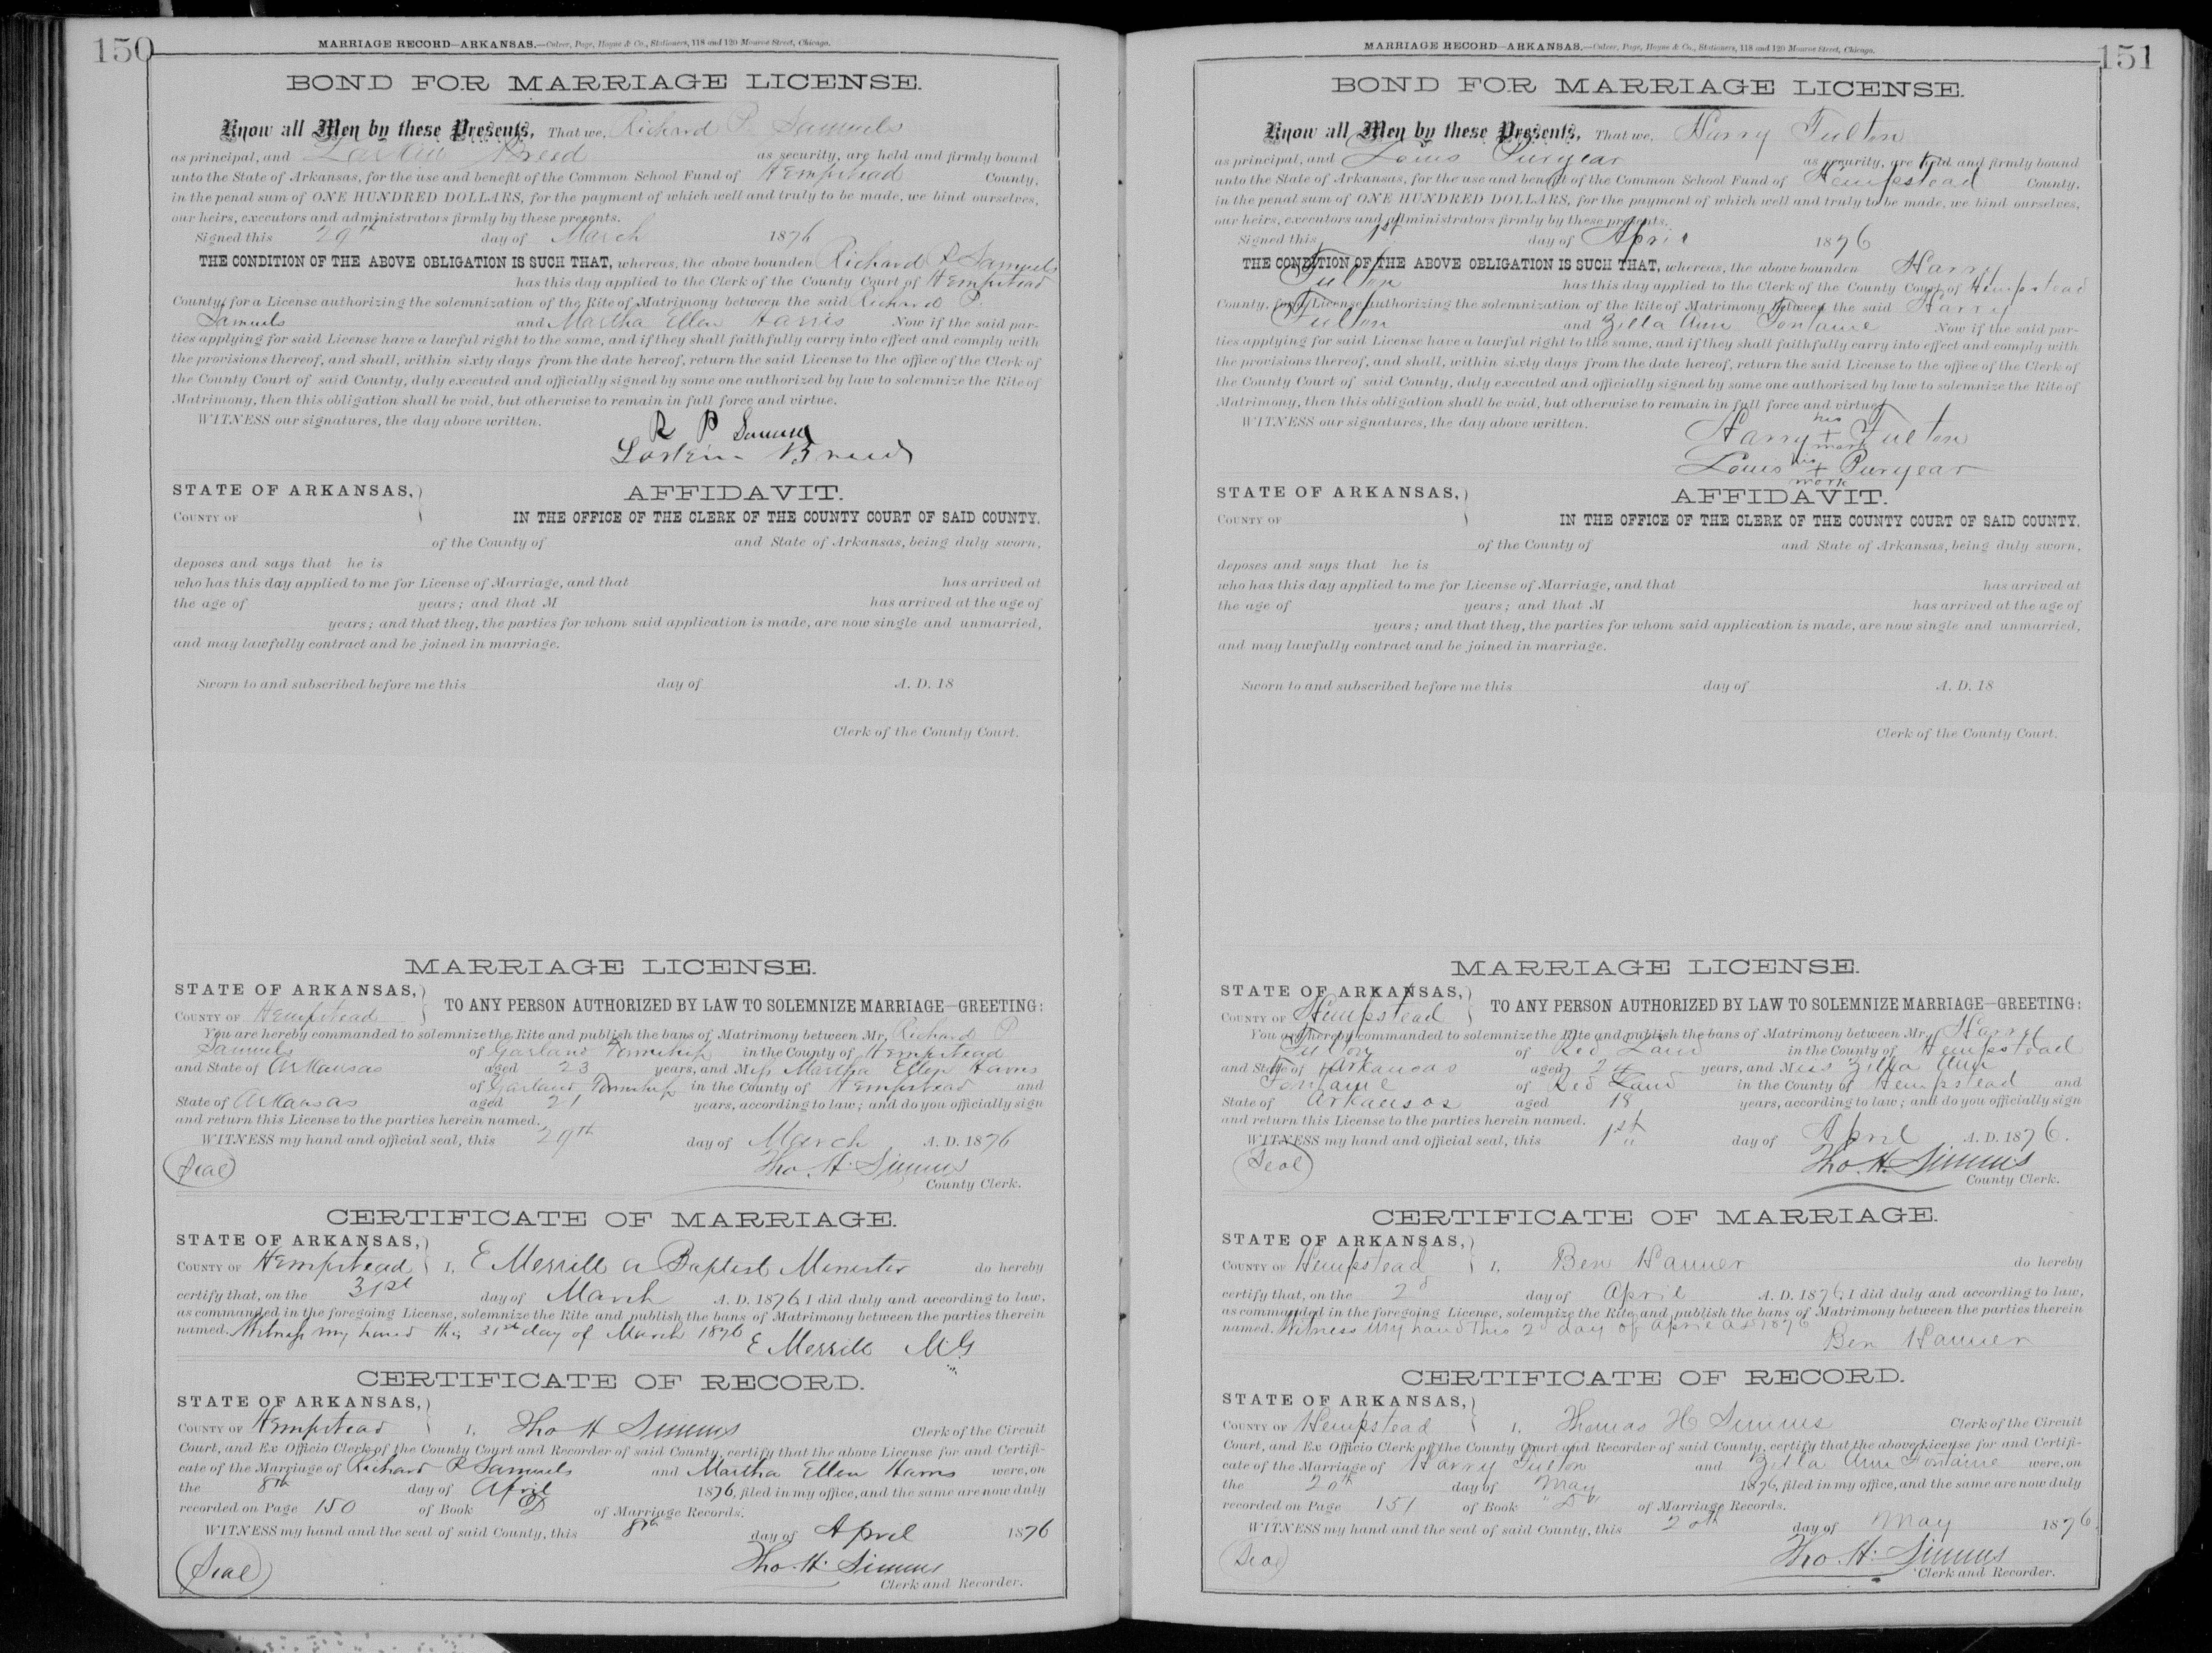 150
MARRIAGE RECORD—ARKANSAS.—Culver, Page, Hoyne & Co., Stationers, 118 and 120 Monroe Street, Chicago.
BOND FOR MARRIAGE LICENSE.
Know all Men by these Presents, That we, Richard P. Samuels
as principal, and as security, are held and firmly bound
unto the State of Arkansas, for the use and benefit of the Common School Fund of Hempstead County,
in the penal sum of ONE HUNDRED DOLLARS, for the payment of which well and truly to be made, we bind ourselves,
our heirs, executors and administrators firmly by these presents.
Signed this 29th day of March 1876
THE CONDITION OF THE ABOVE OBLIGATION IS SUCH THAT, whereas, the above bounden Richard P Samuels
has this day applied to the Clerk of the County Court of Hempstead
County, for a License authorizing the solemnization of the Rite of Matrimony between the said Richard P.
Samuels and Martha Ellen Harris Now if the said par-
ties applying for said License have a lawful right to the same, and if they shall faithfully carry into effect and comply with
the provisions thereof, and shall, within sixty days from the date hereof, return the said License to the office of the Clerk of
the County Court of said County, duly executed and officially signed by some one authorized by law to solemnize the Rite of
Matrimony, then this obligation shall be void, but otherwise to remain in full force and virtue.
WITNESS our signatures, the day above written.
R P Samuels
STATE OF ARKANSAS, AFFIDAVIT.
COUNTY OF IN THE OFFICE OF THE CLERK OF THE COUNTY COURT OF SAID COUNTY.
of the County of and State of Arkansas, being duly sworn,
deposes and says that he is
who has this day applied to me for License of Marriage, and that has arrived at
the age of years; and that M has arrived at the age of
years; and that they, the parties for whom said application is made, are now single and unmarried,
and may lawfully contract and be joined in marriage.
Sworn to and subscribed before me this day of A. D. 18
Clerk of the County Court.
MARRIAGE LICENSE.
STATE OF ARKANSAS,
COUNTY OF Hempstead TO ANY PERSON AUTHORIZED BY LAW TO SOLEMNIZE MARRIAGE—GREETING:
You are hereby commanded to solemnize the Rite and publish the bans of Matrimony between Mr. Richard P
Samuels of Garland Township in the County of Hempstead
and State of Arkansas aged 23 years, and Miss Martha Ellen Harris
of Garland Township in the County of Hempstead and
State of Arkansas aged 21 years, according to law; and do you officially sign
and return this License to the parties herein named.
WITNESS my hand and official seal, this 29th day of March A. D. 1876
(Seal) Tho. H. Simms
County Clerk.
CERTIFICATE OF MARRIAGE.
STATE OF ARKANSAS,
COUNTY OF Hempstead I, E Merrill a Baptist Minister do hereby
certify that, on the 31st day of March A. D. 1876, I did duly and according to law,
as commanded in the foregoing License, solemnize the Rite and publish the bans of Matrimony between the parties therein
named. Witness my hand this 31st day of March 1876
E Merrill M.G
CERTIFICATE OF RECORD.
STATE OF ARKANSAS,
COUNTY OF Hempstead I, Tho H Simms Clerk of the Circuit
Court, and Ex Officio Clerk of the County Court and Recorder of said County, certify that the above License for and Certifi-
cate of the Marriage of Richard P Samuels and Martha Ellen Harris were, on
the 8th day of April 1876, filed in my office, and the same are now duly
recorded on Page 150 of Book D of Marriage Records.
WITNESS my hand and the seal of said County, this 8th day of April 1876
(Seal) Tho. H. Simms
Clerk and Recorder.
151
MARRIAGE RECORD—ARKANSAS.—Culver, Page, Hoyne & Co., Stationers, 118 and 120 Monroe Street, Chicago.
BOND FOR MARRIAGE LICENSE.
Know all Men by these Presents, That we, Harry Fulton
as principal, and Louis Puryear as security, are held and firmly bound
unto the State of Arkansas, for the use and benefit of the Common School Fund of Hempstead County,
in the penal sum of ONE HUNDRED DOLLARS, for the payment of which well and truly to be made, we bind ourselves,
our heirs, executors and administrators firmly by these presents.
Signed this 1st day of April 1876
THE CONDITION OF THE ABOVE OBLIGATION IS SUCH THAT, whereas, the above bounden Harry
Fulton has this day applied to the Clerk of the County Court of Hempstead
County, for a License authorizing the solemnization of the Rite of Matrimony between the said Harry
Fulton and Zilla Ann Fontaine Now if the said par-
ties applying for said License have a lawful right to the same, and if they shall faithfully carry into effect and comply with
the provisions thereof, and shall, within sixty days from the date hereof, return the said License to the office of the Clerk of
the County Court of said County, duly executed and officially signed by some one authorized by law to solemnize the Rite of
Matrimony, then this obligation shall be void, but otherwise to remain in full force and virtue.
WITNESS our signatures, the day above written.
his
Harry + Fulton
mark
his
Louis + Puryear
mark
STATE OF ARKANSAS, AFFIDAVIT.
COUNTY OF IN THE OFFICE OF THE CLERK OF THE COUNTY COURT OF SAID COUNTY.
of the County of and State of Arkansas, being duly sworn,
deposes and says that he is
who has this day applied to me for License of Marriage, and that has arrived at
the age of years; and that M has arrived at the age of
years; and that they, the parties for whom said application is made, are now single and unmarried,
and may lawfully contract and be joined in marriage.
Sworn to and subscribed before me this day of A. D. 18
Clerk of the County Court.
MARRIAGE LICENSE.
STATE OF ARKANSAS,
COUNTY OF Hempstead TO ANY PERSON AUTHORIZED BY LAW TO SOLEMNIZE MARRIAGE—GREETING:
You are hereby commanded to solemnize the Rite and publish the bans of Matrimony between Mr. Harry
Fulton of Red Land in the County of Hempstead
and State of Arkansas aged 24 years, and Miss Zilla Ann
Fontaine of Red Land in the County of Hempstead and
State of Arkansas aged 18 years, according to law; and do you officially sign
and return this License to the parties herein named.
WITNESS my hand and official seal, this 1st day of April A. D. 1876.
(Seal) Tho. H. Simms
County Clerk.
CERTIFICATE OF MARRIAGE.
STATE OF ARKANSAS,
COUNTY OF Hempstead I, Ben Hanner do hereby
certify that, on the 2d day of April A. D. 1876, I did duly and according to law,
as commanded in the foregoing License, solemnize the Rite and publish the bans of Matrimony between the parties therein
named. Witness my hand this 2d day of April AD 1876
Ben Hanner
CERTIFICATE OF RECORD.
STATE OF ARKANSAS,
COUNTY OF Hempstead I, Thomas H Simms Clerk of the Circuit
Court, and Ex Officio Clerk of the County Court and Recorder of said County, certify that the above License for and Certifi-
cate of the Marriage of Harry Fulton and Zilla Ann Fontaine were, on
the 20th day of May 1876, filed in my office, and the same are now duly
recorded on Page 151 of Book "D" of Marriage Records.
WITNESS my hand and the seal of said County, this 20th day of May 1876.
(Seal) Tho. H. Simms
Clerk and Recorder.